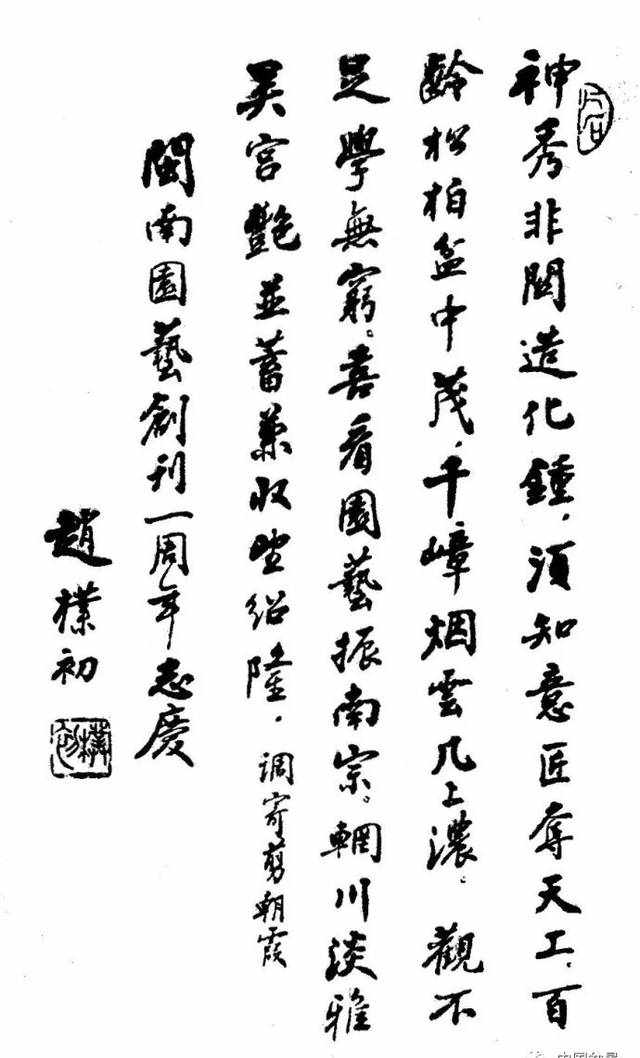 神秀非關造化鍾,須知意匠奪天工。百
齡松柏盆中茂,千嶂烟雲几上濃。觀不
足,學無窮。喜看園藝振南宗。輞川淡雅
吴宫艷,並蓄兼收望紹隆。调寄剪朝霞
閩南園藝創刊一周年志慶
趙樸初